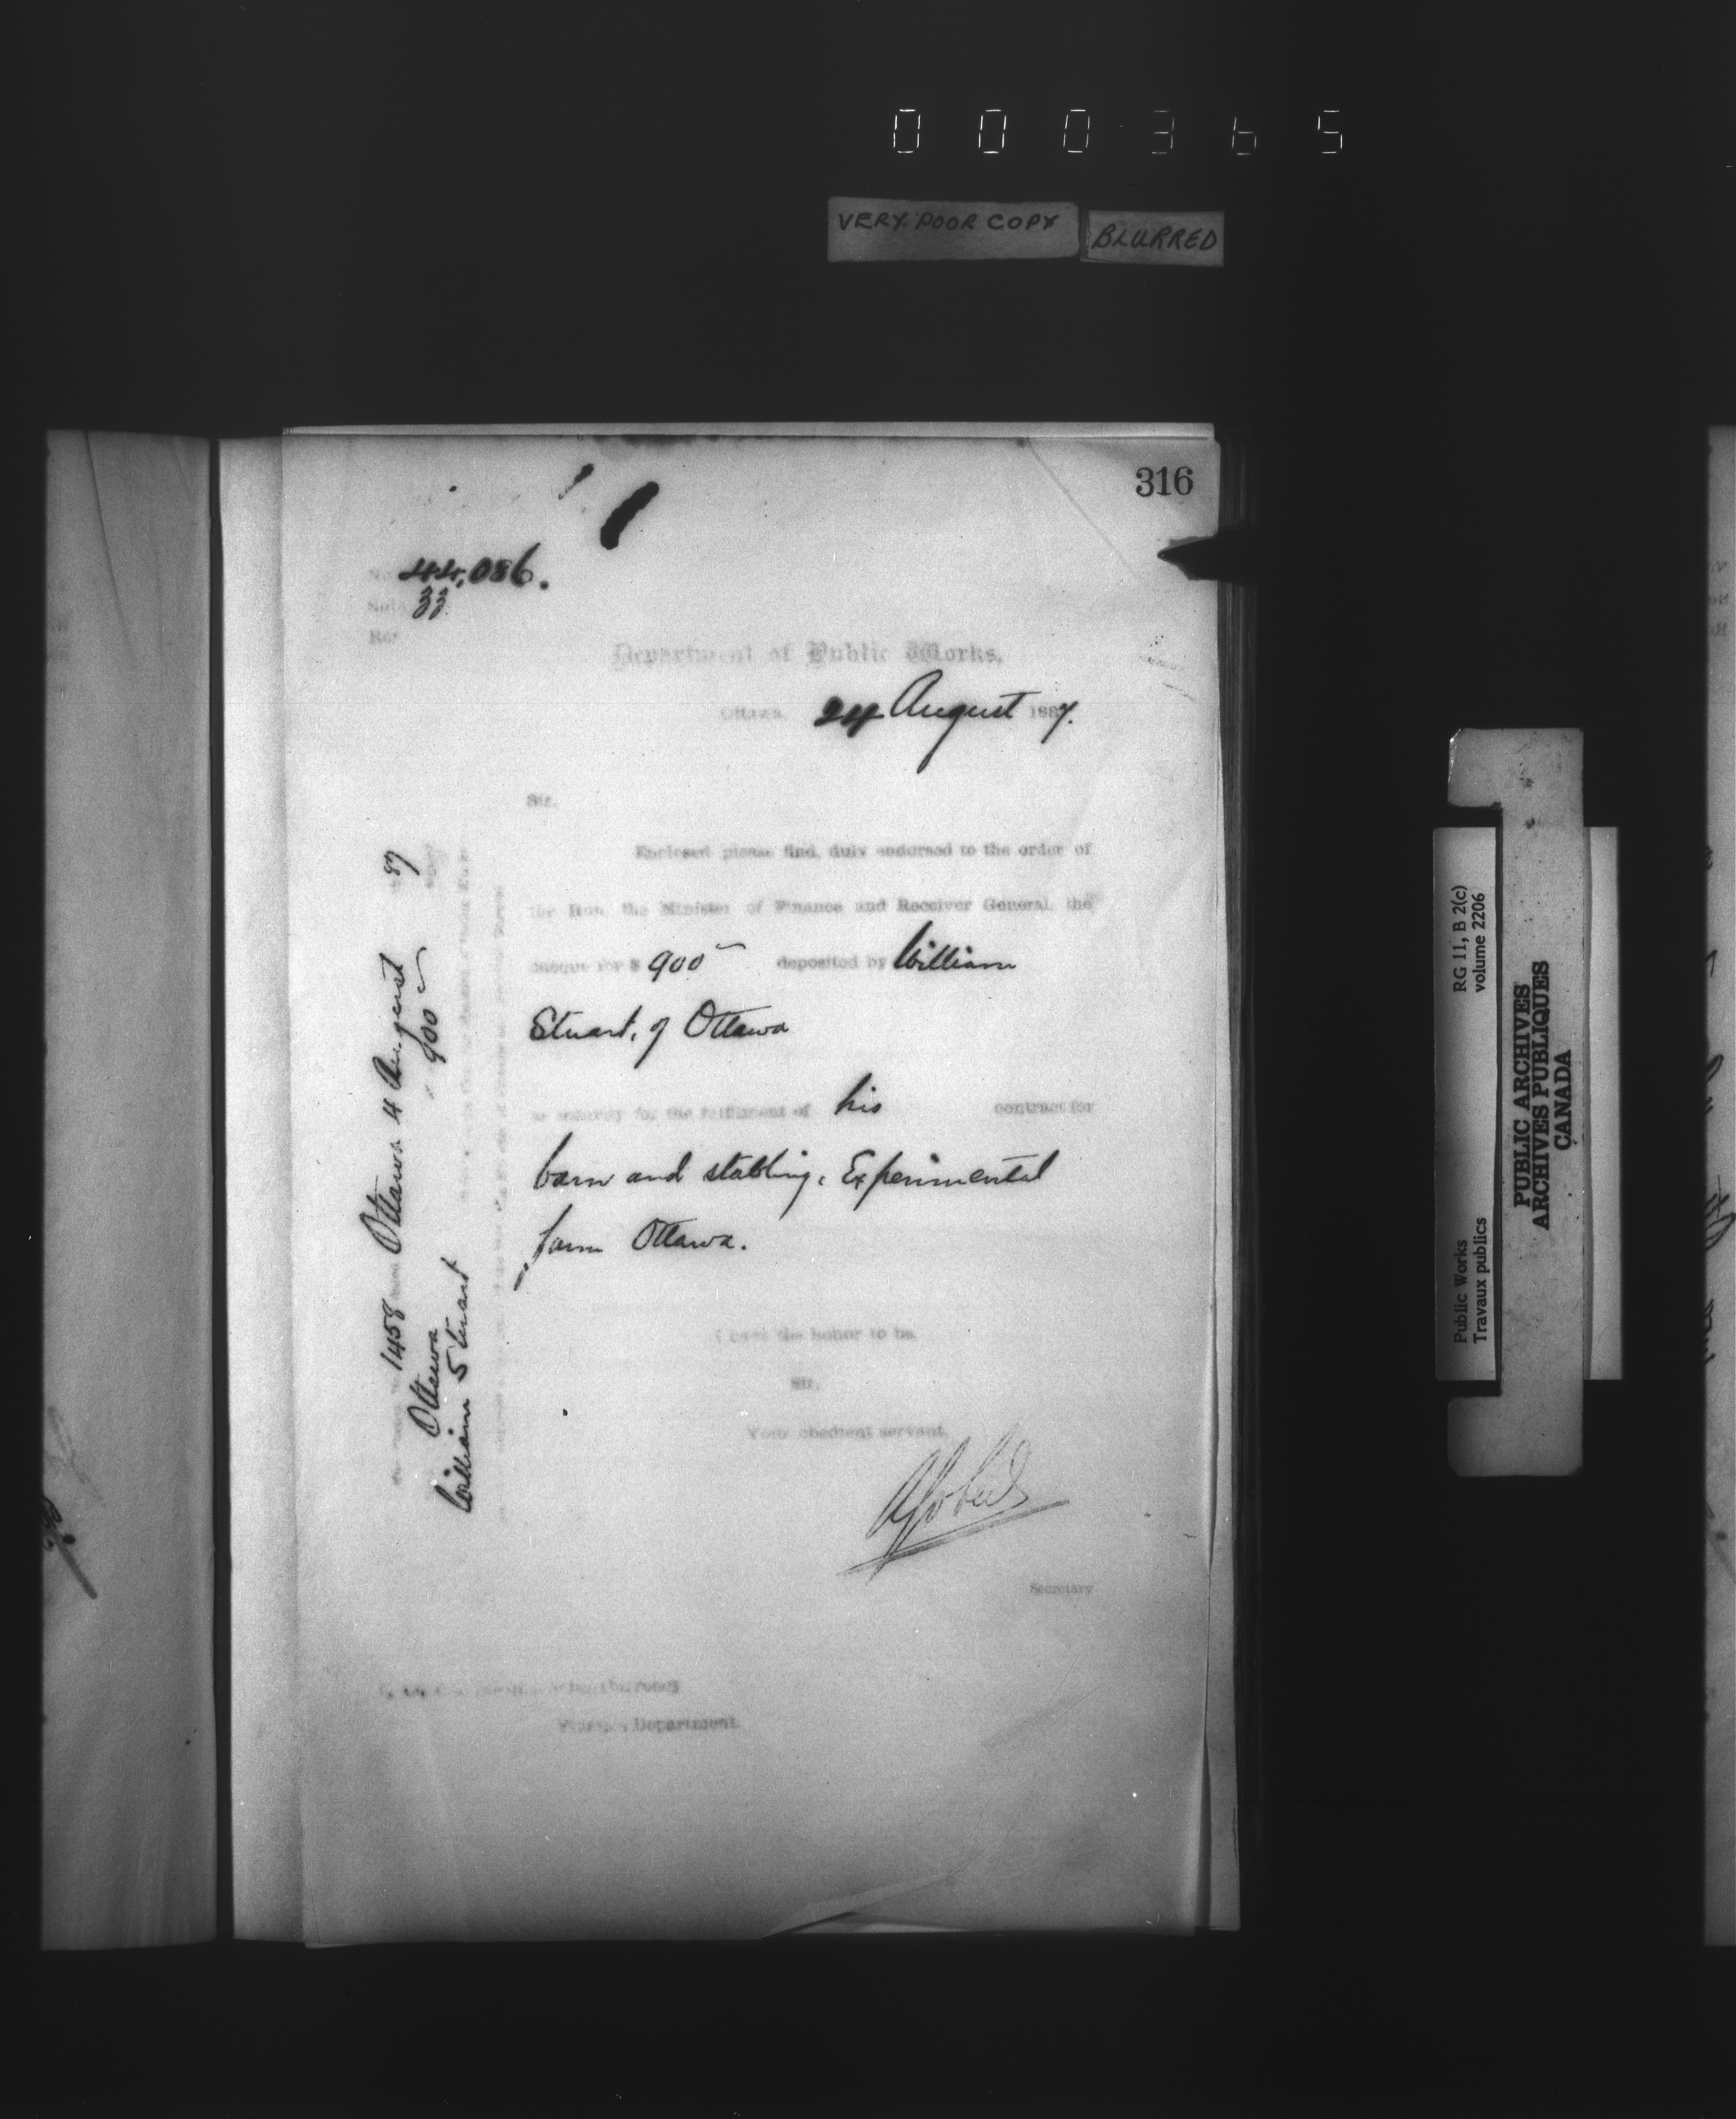 000365
VERY POOR COPY
BLURRED
316
No. 44,086.
33
Department of Public Works,
Ottawa, 24 August 1887.
Sir,
Enclosed please find, duly endorsed to the order of
the Hon. the Minister of Finance and Receiver General, the
cheque for $ 900 deposited by William
Stuart, of Ottawa
as security for the fulfilment of his contract for
barn and stabling, Experimental
farm Ottawa.
I have the honor to be,
Sir,
Your obedient servant,
Secretary
Finance Department.
1458 Ottawa 4 August 87
Ottawa 900
William Stuart
Public Works
Travaux publics
RG 11, B 2(c)
volume 2206
PUBLIC ARCHIVES
ARCHIVES PUBLIQUES
CANADA